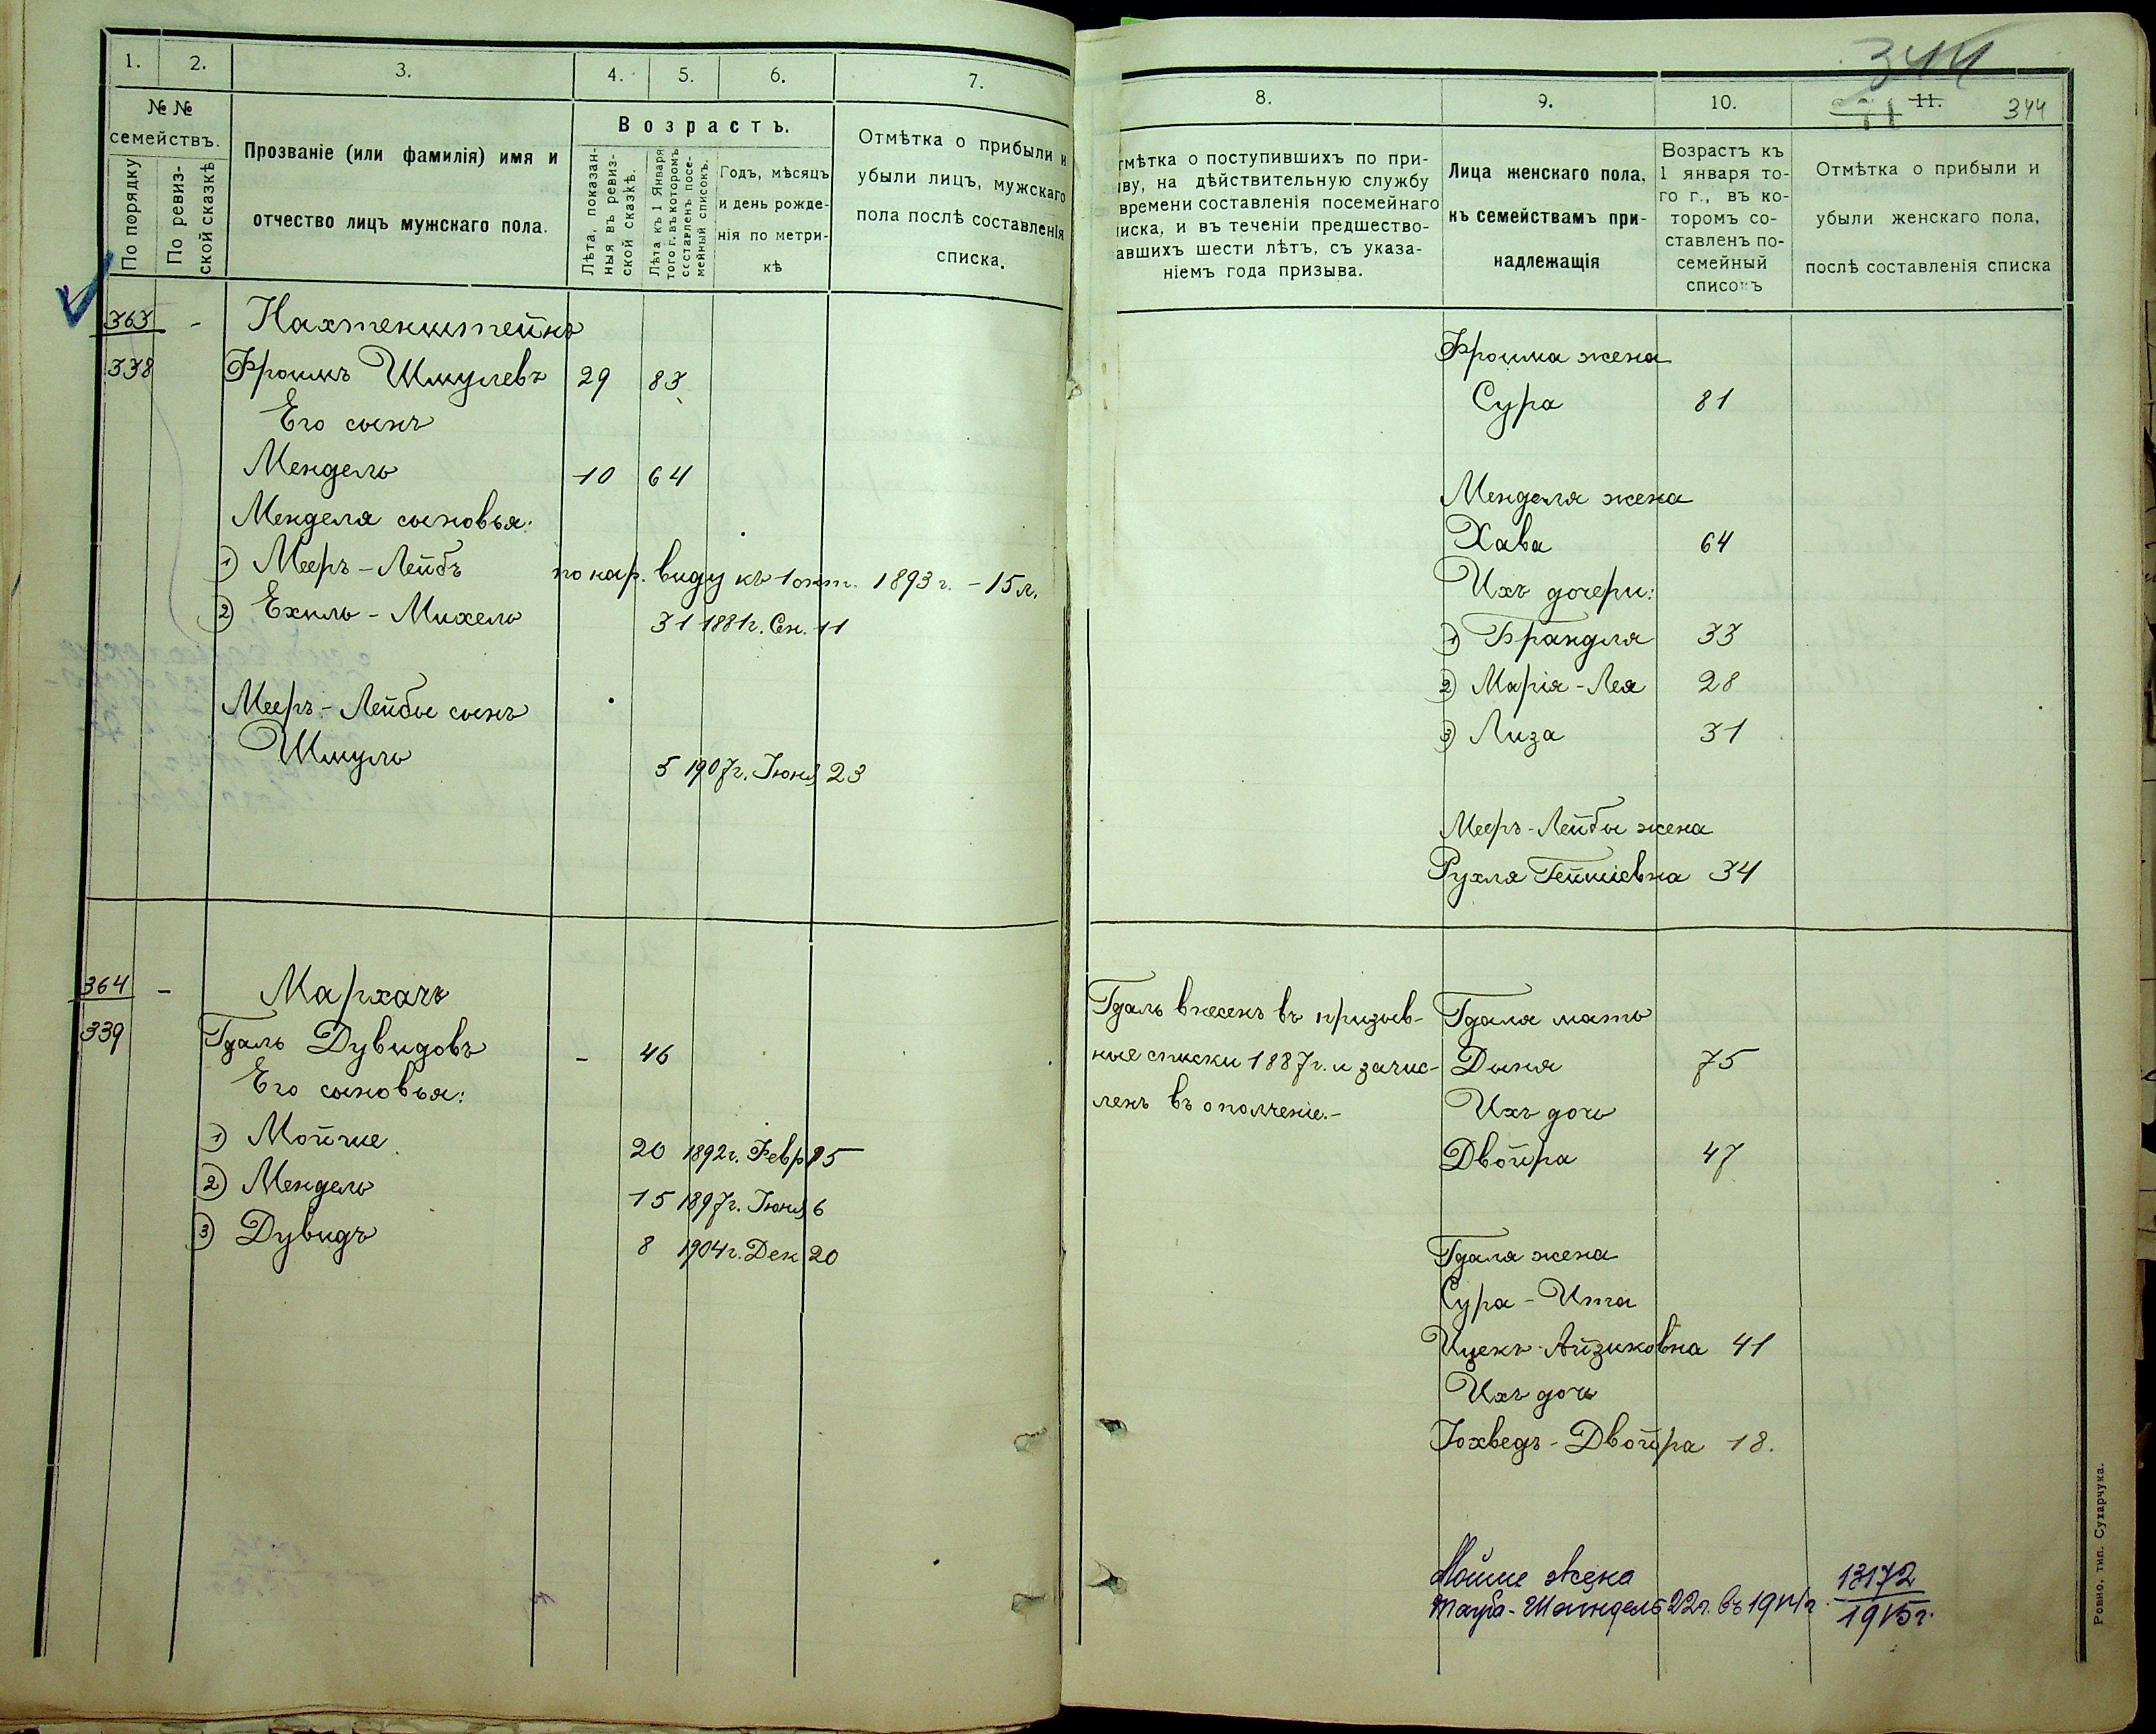 1.
2.
3.
4.
5.
6.
7.
№ №
семействъ.
По порядку
По ревизской сказкѣ
Прозваніе (или фамилія) имя и
отчество лицъ мужскаго пола.
Возрастъ.
Лѣта, показан-
ныя въ ревиз-
ской сказкѣ.
Лѣта къ 1 Января
того г. въ которомъ
составленъ посе-
мейный списокъ.
Годъ, мѣсяцъ
и день рожде-
нія по метри-
кѣ
Отмѣтка о прибыли и
убыли лицъ, мужскаго
пола послѣ составленія
списка.
363
338
-
Нахтенштейнъ
Фроимъ Шмулевъ 29 83
Его сынъ
Мендель 10 64
Менделя сыновья:
1) Мееръ-Лейбъ по нар. виду къ 1 окт. 1893 г. - 15 л.
2) Ехиль-Михель 31 1881г. Сен. 11
Мееръ-Лейбы сынъ
Шмуль 5 1907г. Іюня 23
364
339
-
Мархачъ
Гдаль Дувидовъ - 46
Его сыновья:
1) Мойше 20 1892г. Февр. 25
2) Мендель 15 1897г. Іюня 6
3) Дувидъ 8 1904г. Дек. 20
344
344
8.
9.
10.
11.
тмѣтка о поступившихъ по при-
ыву, на дѣйствительную службу
времени составленія посемейнаго
иска, и въ теченіи предшество-
авшихъ шести лѣтъ, съ указа-
ніемъ года призыва.
Лица женскаго пола,
къ семействамъ при-
надлежащія
Возрастъ къ
1 января то-
го г., въ ко-
торомъ со-
ставленъ по-
семейный
списокъ
Отмѣтка о прибыли и
убыли женскаго пола,
послѣ составленія списка
Фроима жена
Сура 81
Менделя жена
Хава 64
Ихъ дочери:
1) Брандля 33
2) Марія-Лея 28
3) Лиза 31
Мееръ-Лейбы жена
Рухля 34
Гдаль внесенъ въ призыв-
ные списки 1887г. и зачис-
ленъ въ ополченіе.-
Гдаля мать
Дыня 75
Ихъ дочь
Двойра 47
Гдаля жена
Сура-Ита
Ицекъ-Айзиковна 41
Ихъ дочь
Іохведъ-Двойра 18.
Мойше жена
Тауба-Шейндель 22 г. въ 1914 г.
13172
1915 г.
Ровно, тип. Сухарчука.